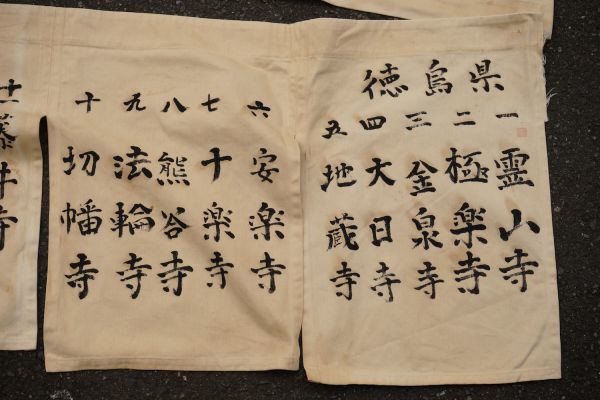 徳島県
一 霊山寺
二 極楽寺
三 金泉寺
四 大日寺
五 地蔵寺
六 安楽寺
七 十楽寺
八 熊谷寺
九 法輪寺
十 切幡寺
十一 藤井寺